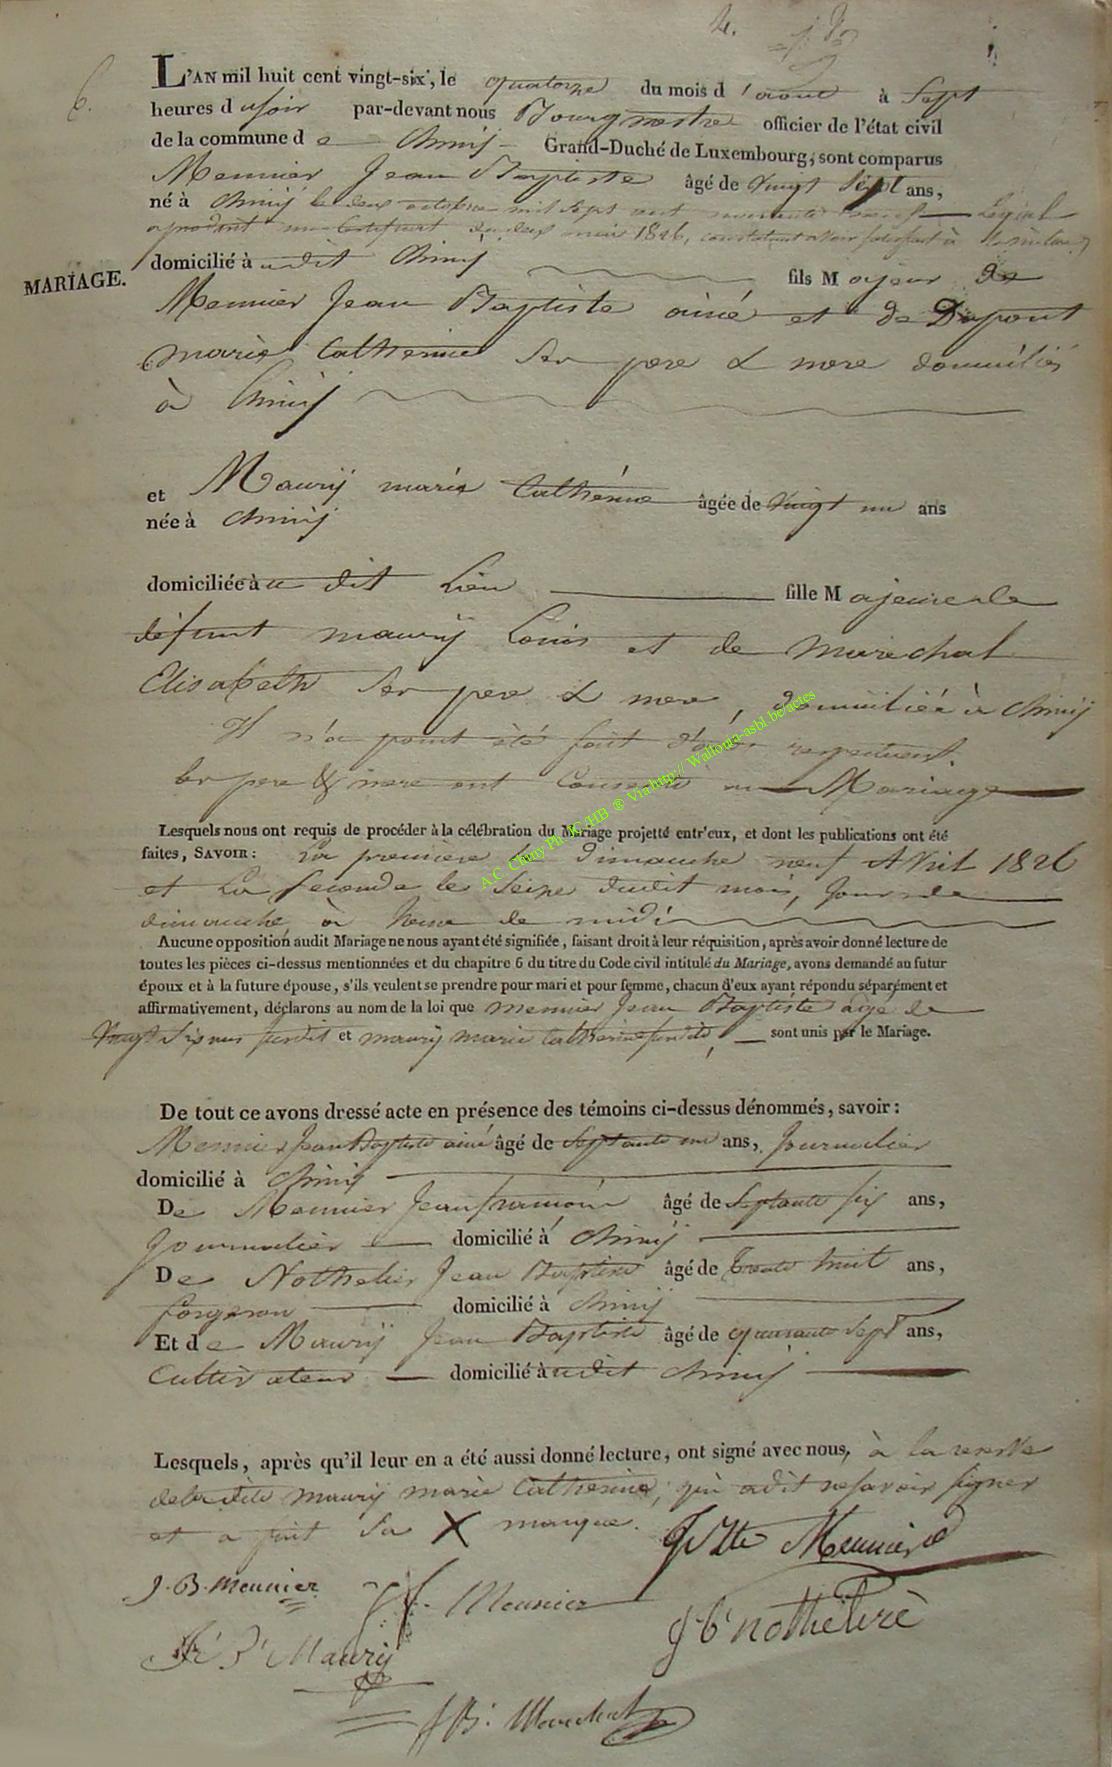 4.
6.
L'AN mil huit cent vingt-six, le quatorze du mois d'aout à Sept
heures d u soir par-devant nous Bourgmestre officier de l'état civil
de la commune d e Chiny Grand-Duché de Luxembourg, sont comparus
Meunier Jean Baptiste âgé de Vingt Sept ans,
né à Chiny le deux octobre mil Sept cent nonante
a produit un Certificat mai 1826, constatant avoir satisfait à
MARIAGE.
domicilié à udit Chiny fils M ajeur de
Meunier Jean Baptiste ainé et de Dupont
marie Catherine Ses pere & mere domiciliés
à Chiny
et Maurÿ marie Catherine âgée de Vingt un ans
née à Chinÿ
domiciliée à u dit Lieu fille M ajeure de
défunt maurÿ Louis et de Marechal
Elisabeth Ses pere & mere, domiciliée à Chiny
Il n'a point été fait d'acte respectueux.
les pere & mere ont Consenti au Mariage
Lesquels nous ont requis de procéder à la célébration du Mariage projetté entr'eux, et dont les publications ont été
faites, SAVOIR: La premiere le Dimanche neuf Avril 1826
et La Seconde le Seize dudit mois, Jour de
dimanche à heure de midi
Aucune opposition audit Mariage ne nous ayant été signifiée, faisant droit à leur réquisition, après avoir donné lecture de
toutes les pièces ci-dessus mentionnées et du chapitre 6 du titre du Code civil intitulé du Mariage, avons demandé au futur
époux et à la future épouse, s'ils veulent se prendre pour mari et pour femme, chacun d'eux ayant répondu séparément et
affirmativement, déclarons au nom de la loi que meunier Jean Baptiste agé de
Vingt Six ans susdit et maurÿ marie Catherine susdite, sont unis par le Mariage.
De tout ce avons dressé acte en présence des témoins ci-dessus dénommés, savoir:
Meunier Jean Baptiste ainé âgé de Septante un ans, Journalier
domicilié à Chiny
De Meunier Jean francois âgé de Septante six ans,
Journalier domicilié à Chinÿ
De Nothelier Jean Baptiste âgé de trente huit ans,
forgeron domicilié à Chinÿ
Et d e Maurÿ Jean Baptiste âgé de quarante Sept ans,
Cultivateur domicilié à udit Chinÿ
Lesquels, après qu'il leur en a été aussi donné lecture, ont signé avec nous, à la reserve
de ladite maurÿ marie Catherine, qui a dit ne savoir signer
et a fait Sa X marque. J Bte Meunier
J. B. Meunier J f. Meunier
J b nothelier
J B Maurÿ
J B. Marechal
A.C. Chiny Ph JC/HB ® Via http://Wallonia-asbl.be/actes